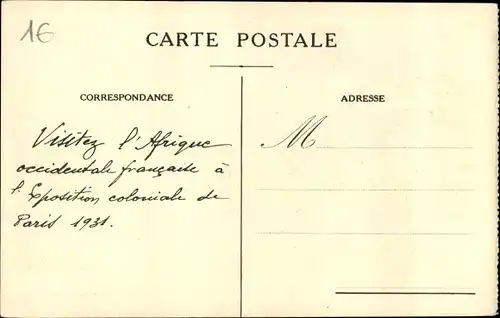 16
CARTE POSTALE
CORRESPONDANCE
ADRESSE
Visitez l'Afrique
occidentale française à
l'Exposition coloniale de
Paris 1931.
M